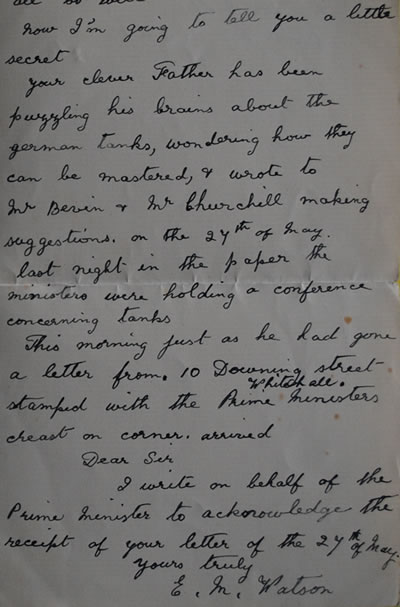 now I'm going to tell you a little
secret
your clever Father has been
puzzling his brains about the
german tanks, wondering how they
can be mastered, & wrote to
Mr Bevin & Mr Churchill making
suggestions. on the 27th of May.
last night in the paper the
ministers were holding a conference
concerning tanks
This morning just as he had gone
a letter from. 10 Downing street
Whitehall.
stamped with the Prime Ministers
creast on corner. arrived
Dear Sir
I write on behalf of the
Prime Minister to acknowledge the
receipt of your letter of the 27th of May.
yours truly
E. M. Watson